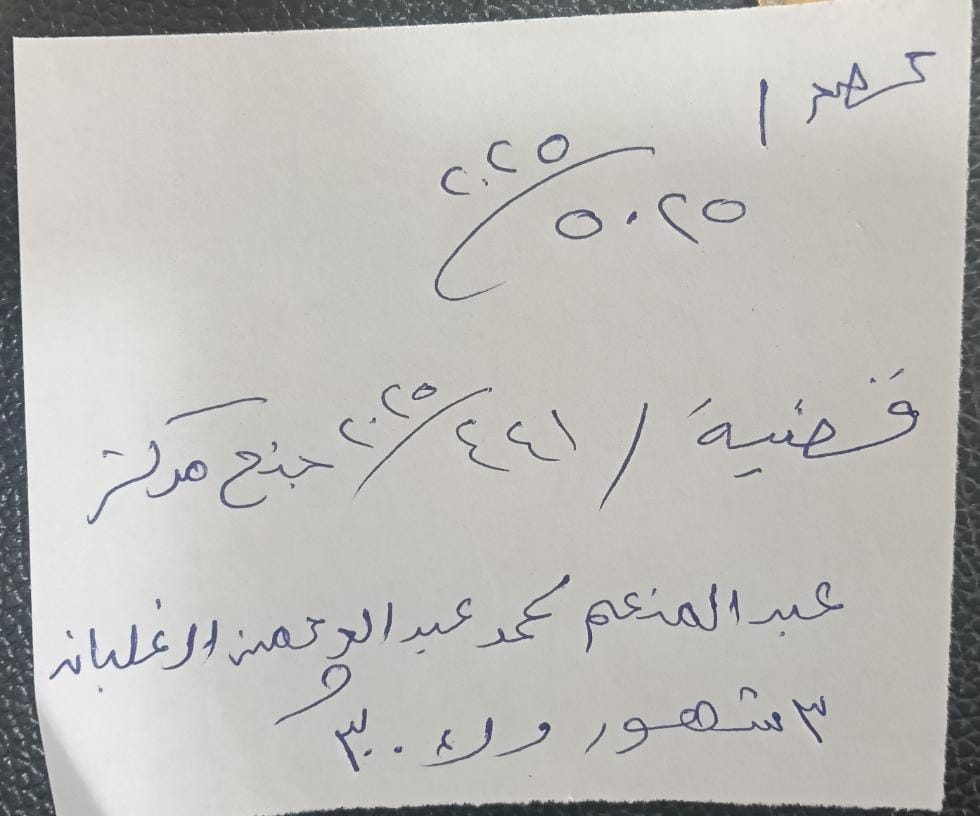 حصر / ٥٠٢٥ / ٢٠٢٥
قضية / ٤٤١ / ٢٠٢٥ جنح مركز
عبد المنعم محمد عبد الرحمن الغلبان
٣ شهور وك ٣٠٠